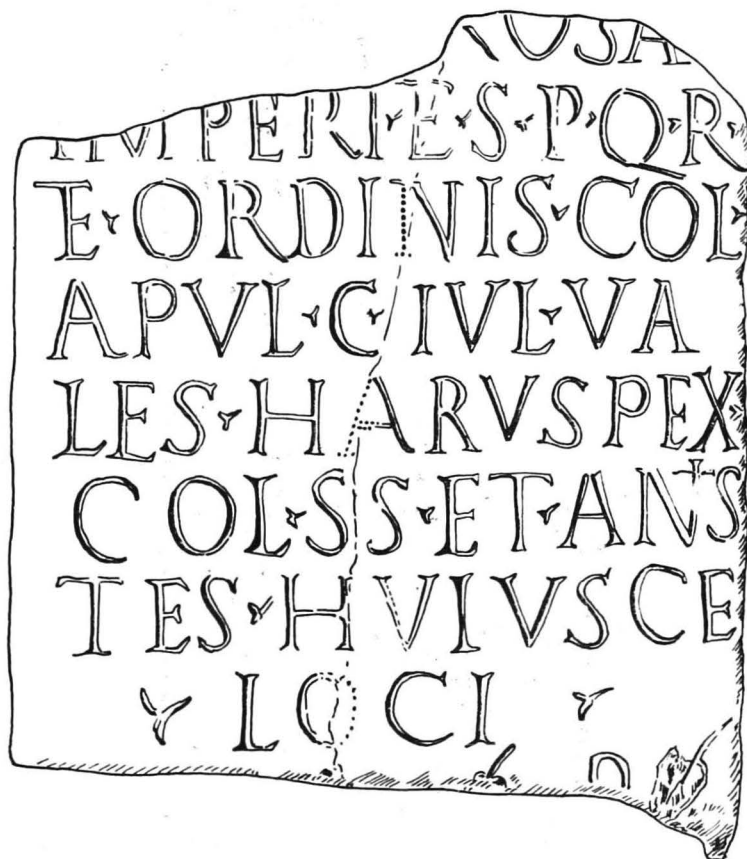 IMPERI·E·S·P·Q·R·
E·ORDINIS·COL·
APVL·C·IVL·VA
LES·HARVSPEX·
COL·S S·ET·ANTS
TES·HVIVSCE
·LOCI·